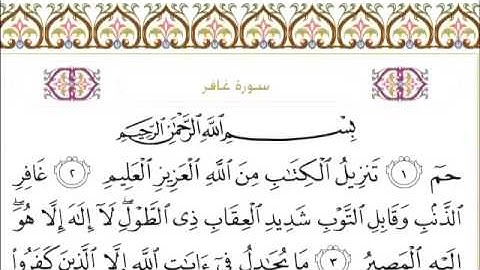 سورة غافر
بِسْمِ ٱللَّهِ ٱلرَّحْمَٰنِ ٱلرَّحِيمِ
حمٓ ١ تَنزِيلُ ٱلْكِتَٰبِ مِنَ ٱللَّهِ ٱلْعَزِيزِ ٱلْعَلِيمِ ٢ غَافِرِ
ٱلذَّنۢبِ وَقَابِلِ ٱلتَّوْبِ شَدِيدِ ٱلْعِقَابِ ذِى ٱلطَّوْلِ ۖ لَآ إِلَٰهَ إِلَّا هُوَ ۖ
إِلَيْهِ ٱلْمَصِيرُ ٣ مَا يُجَٰدِلُ فِىٓ ءَايَٰتِ ٱللَّهِ إِلَّا ٱلَّذِينَ كَفَرُوا۟